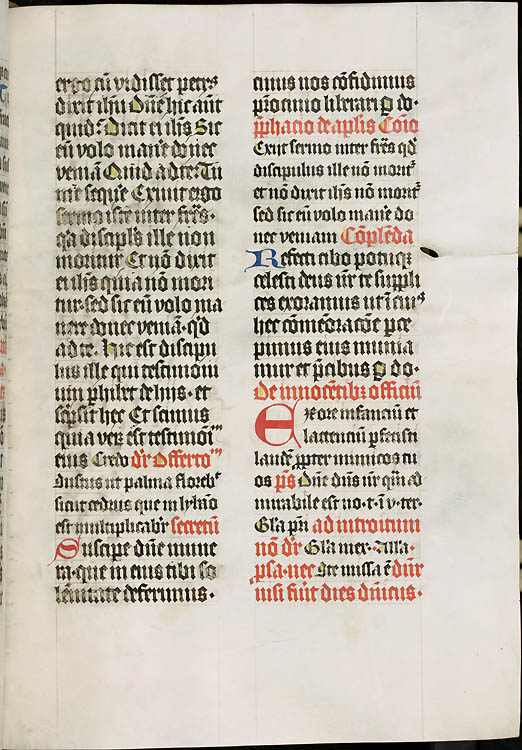 ergo cū vidisset petrꝯ
dixit ih̄u Dn̄e hic aūt
quid· Dicit ei ih̄s Sic
eū volo man̄e donec
veniā Quid ad te· Tu
me seq̄re Exiuit ergo
sermo iste inter fr̄es·
q̄a discipl̄s ille non
moritur Et nō dixit
ei ih̄s quia nō mori
tur· sed sic eū volo ma
nere donec veniā· q̄d
ad te· hic est discipu
lus ille qui testimoni
um phibet de hijs· et
scͥpsit hec Et scimus
quia verꝫ est testimōiꝫ
eius Credo dr̄ Offerto
Iustus ut palma florebͭ
sicut cedrus que in lybāo
est multiplicabr̄ secretū
Suscipe dn̄e mune
ra· que in eius tibi so
lēnitate deferimus·
cuius nos cōfidimus
pͦtocinio liberari Ꝑ do·
p̄phacio de apl̄is Cōio
Exiit sermo inter fr̄es qd̄
discipulus ille nō moritͬ
et nō dixit ih̄s nō moritͬ
sed sic eū volo man̄e do
nec veniam Cōpl̄eda
Refecti cibo potuqꝫ
celesti deus nr̄ te suppli
ces exoramus ut ī cuiꝯ
hec cōmēoracōe pce
pimus eius munia
mur et p̄cibus Ꝑ do·
De innocētibꝫ officiū
Ex ore infanciū et
lactenciū pfecisti
laudē ꝓpter inimicos tu
os p̄s Dn̄e dn̄s nr̄ qm̄ ad
mirabile est no· t· ī v· ter·
Gl̄a pr̄i ad introitum
nō dr̄ Gl̄a in ex· Alla·
psa· nec Ite missa ē dn̄r
nisi fuit dies dn̄icus·